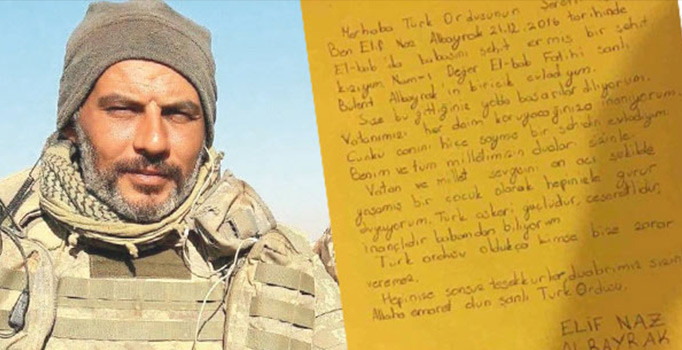 Merhaba Türk Ordusunun
Ben Elif Naz Albayrak 21.12.2016 tarihinde
El-bab'da babasını şehit vermiş bir şehit
kızıyım Nam-ı Değer El-bab Fatihi şanlı
Bülent Albayrak'ın biricik evladıyım.
Size bu gittiğiniz yolda başarılar diliyorum,
Vatanımızı her daim koruyacağınıza inanıyorum.
Çünkü canını hiçe saymış bir şehidin evladıyım.
Benim ve tüm milletimizin duaları sizinle
Vatan ve millet sevgisini en acı şekilde
yaşamış bir çocuk olarak hepinizle gurur
duyuyorum. Türk askeri güçlüdür, cesaretlidir,
inançlıdır babamdan biliyorum
Türk ordusu oldukça kimse bize zarar
veremez.
Hepinize sonsuz teşekkürler, dualarımız sizin
Allaha emanet olun şanlı Türk Ordusu,
ELİF NAZ
ALBAYRAK